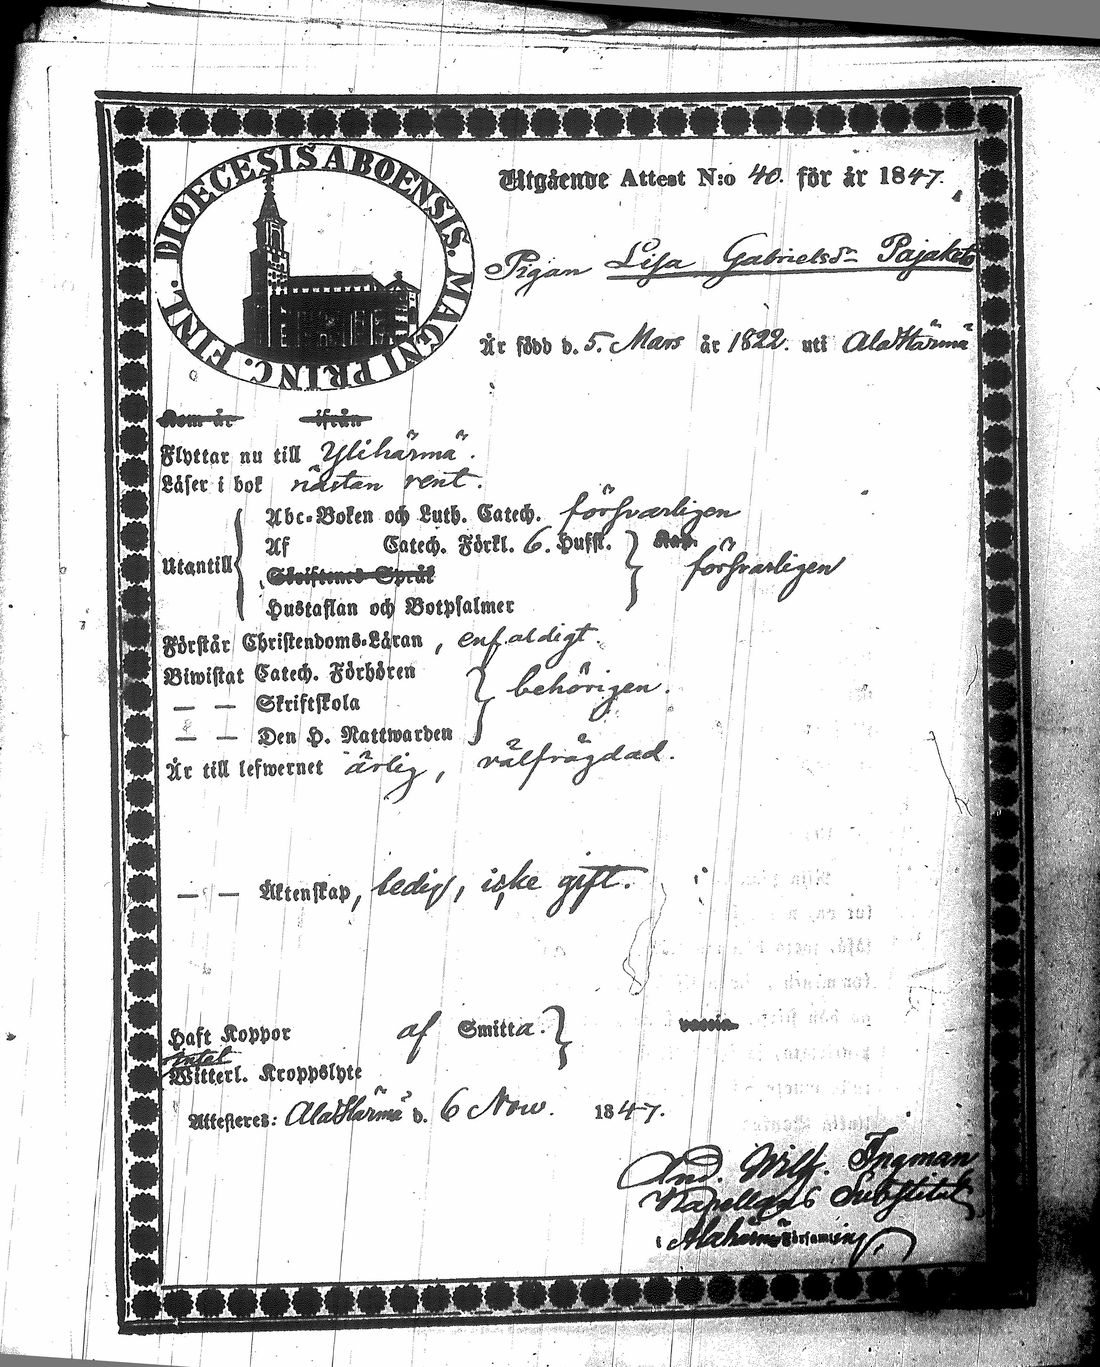 DIOECESIS ABOENSIS. MAGNI PRINC. FINL.
Utgående Attest N:o 40. för år 1847.
Pigan Lisa Gabrielsdr Pajaketo
Är född d. 5. Mars år 1822. uti AlaHärmä
Kom år ifrån
Flyttar nu till Ylihärmä.
Läser i bok nästan rent.
Abc-Boken och Luth. Catech. försvarligen
Utantill Af Catech. Förkl. 6. Hufst. Kap. försvarligen
Skriftenes Språk
Hustaflan och Botpsalmer
Förstår Christendoms-Läran, enfaldigt.
Biwistat Catech. Förhören
— — Skriftskola behörigen.
— — Den H. Nattwarden
Är till lefwernet ärlig, välfrägdad.
— — Äktenskap, ledig, icke gift.
Haft Koppor af Smitta. vaccin.
Intet
Witterl. Kroppslyte
Attesteres: AlaHärmä d. 6 Nov. 1847.
And. Wilh. Ingman
Kapellans Substitut
i Alahärmä församling.